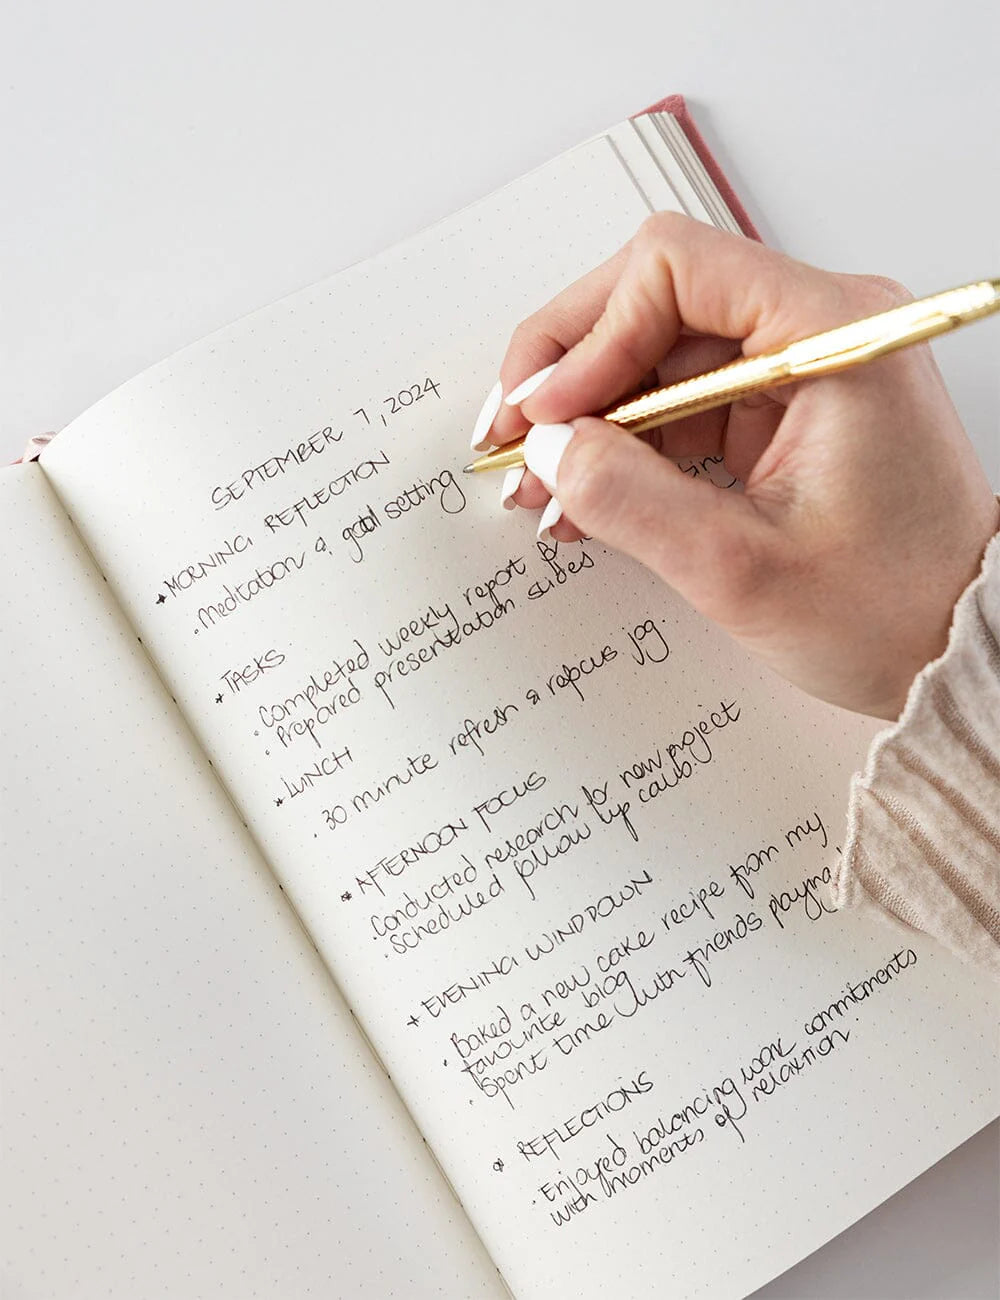 SEPTEMBER 7, 2024
* MORNING REFLECTION
• Meditation & goal setting
* TASKS
• Completed weekly report
• Prepared presentation slides
* LUNCH
• 30 minute refresh &
* AFTERNOON FOCUS
• Conducted research for new project
• Scheduled follow up
* EVENING WIND DOWN
• Baked a new cake recipe from my
favourite blog
• Spent time with friends
* REFLECTIONS
• Enjoyed balancing work commitments
with moments of relaxtion.